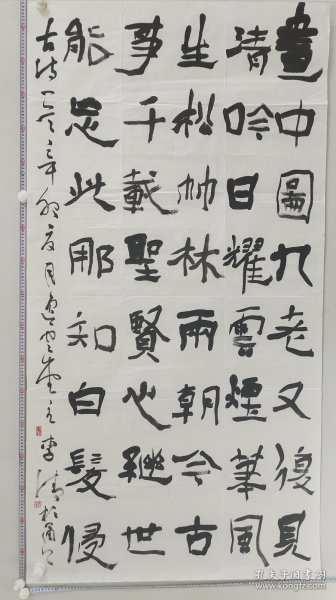 畫中圖九老又復見
清吟日耀雲煙筆風
生松竹林兩朝今古
事千載聖賢心繼世
能忘此那知白髮侵
古诗一首
孔夫子旧书网